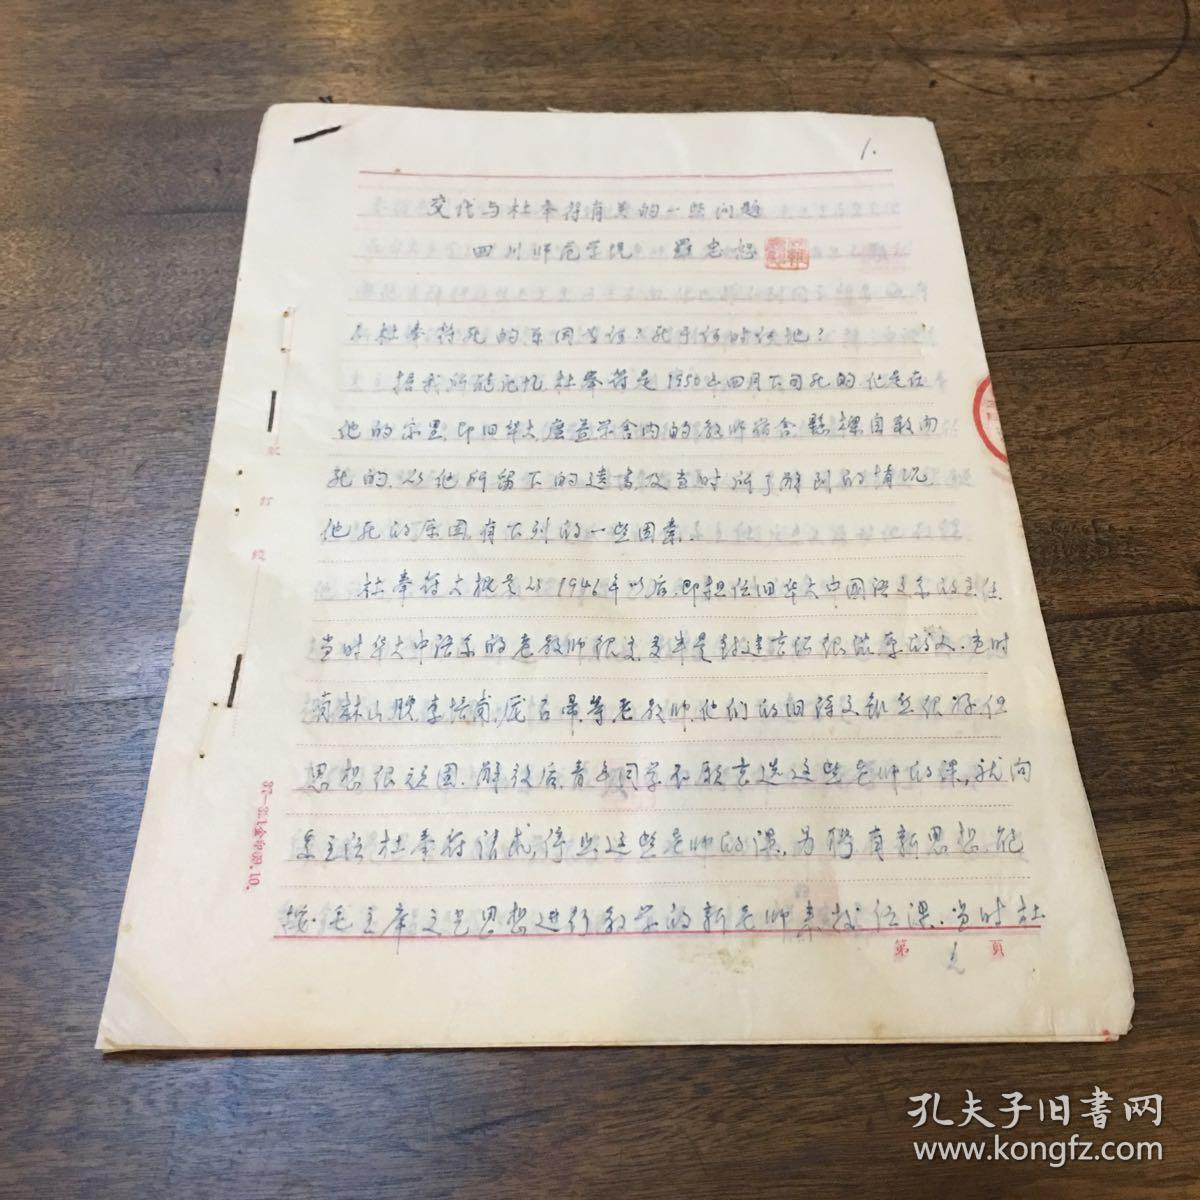 1.
交代与杜奉符有关的一些问题
四川师范学院 羅忠恕
杜奉符死的原因为何?死于何时何地?
据我所能记忆,杜奉符是1950年四月下旬死的.他是在
他的家里,即旧华大广益学舍内的教师宿舍,悬樑自殺而
死的.从他所留下的遗书及当时所了解到的情况,
他死的原因,有下列的一些因素.
杜奉符大概是从1946年以后,即担任旧华大中国语文系的主任.
当时华大中语系的老教师很多,多半是封建古坛很深的人.当时
林山腴,李培甫,庞石帚等老教师,他们的旧诗文虽然很好,但
思想很顽固.解放后,青年同学不愿去选这些老师的课,就向
系主任杜奉符请求,停止这些老师的课,另聘有新思想,能
按毛主席文艺思想进行教学的新老师来校任课.当时杜
第 1 頁
装 订 线
孔夫子旧書网
www.kongfz.com